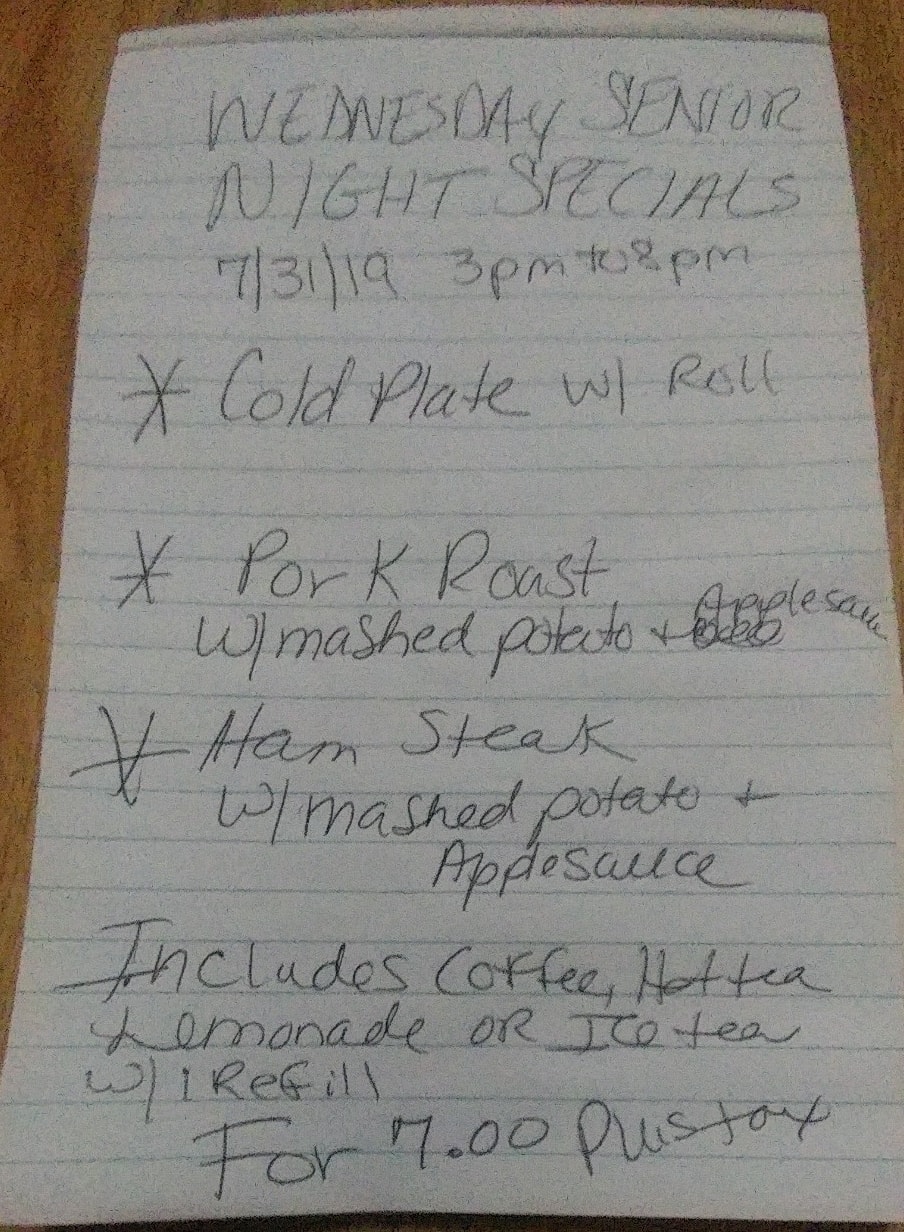 WEDNESDAY SENIOR
NIGHT SPECIALS
7/31/19 3pm to 8pm
* Cold Plate w/ Roll
* Pork Roast
w/mashed potato + Applesauce
* Ham Steak
w/mashed potato +
Applesauce
Includes Coffee, Hot tea
+ Lemonade OR Ice tea
w/ 1 Refill
For 7.00 Plus tax